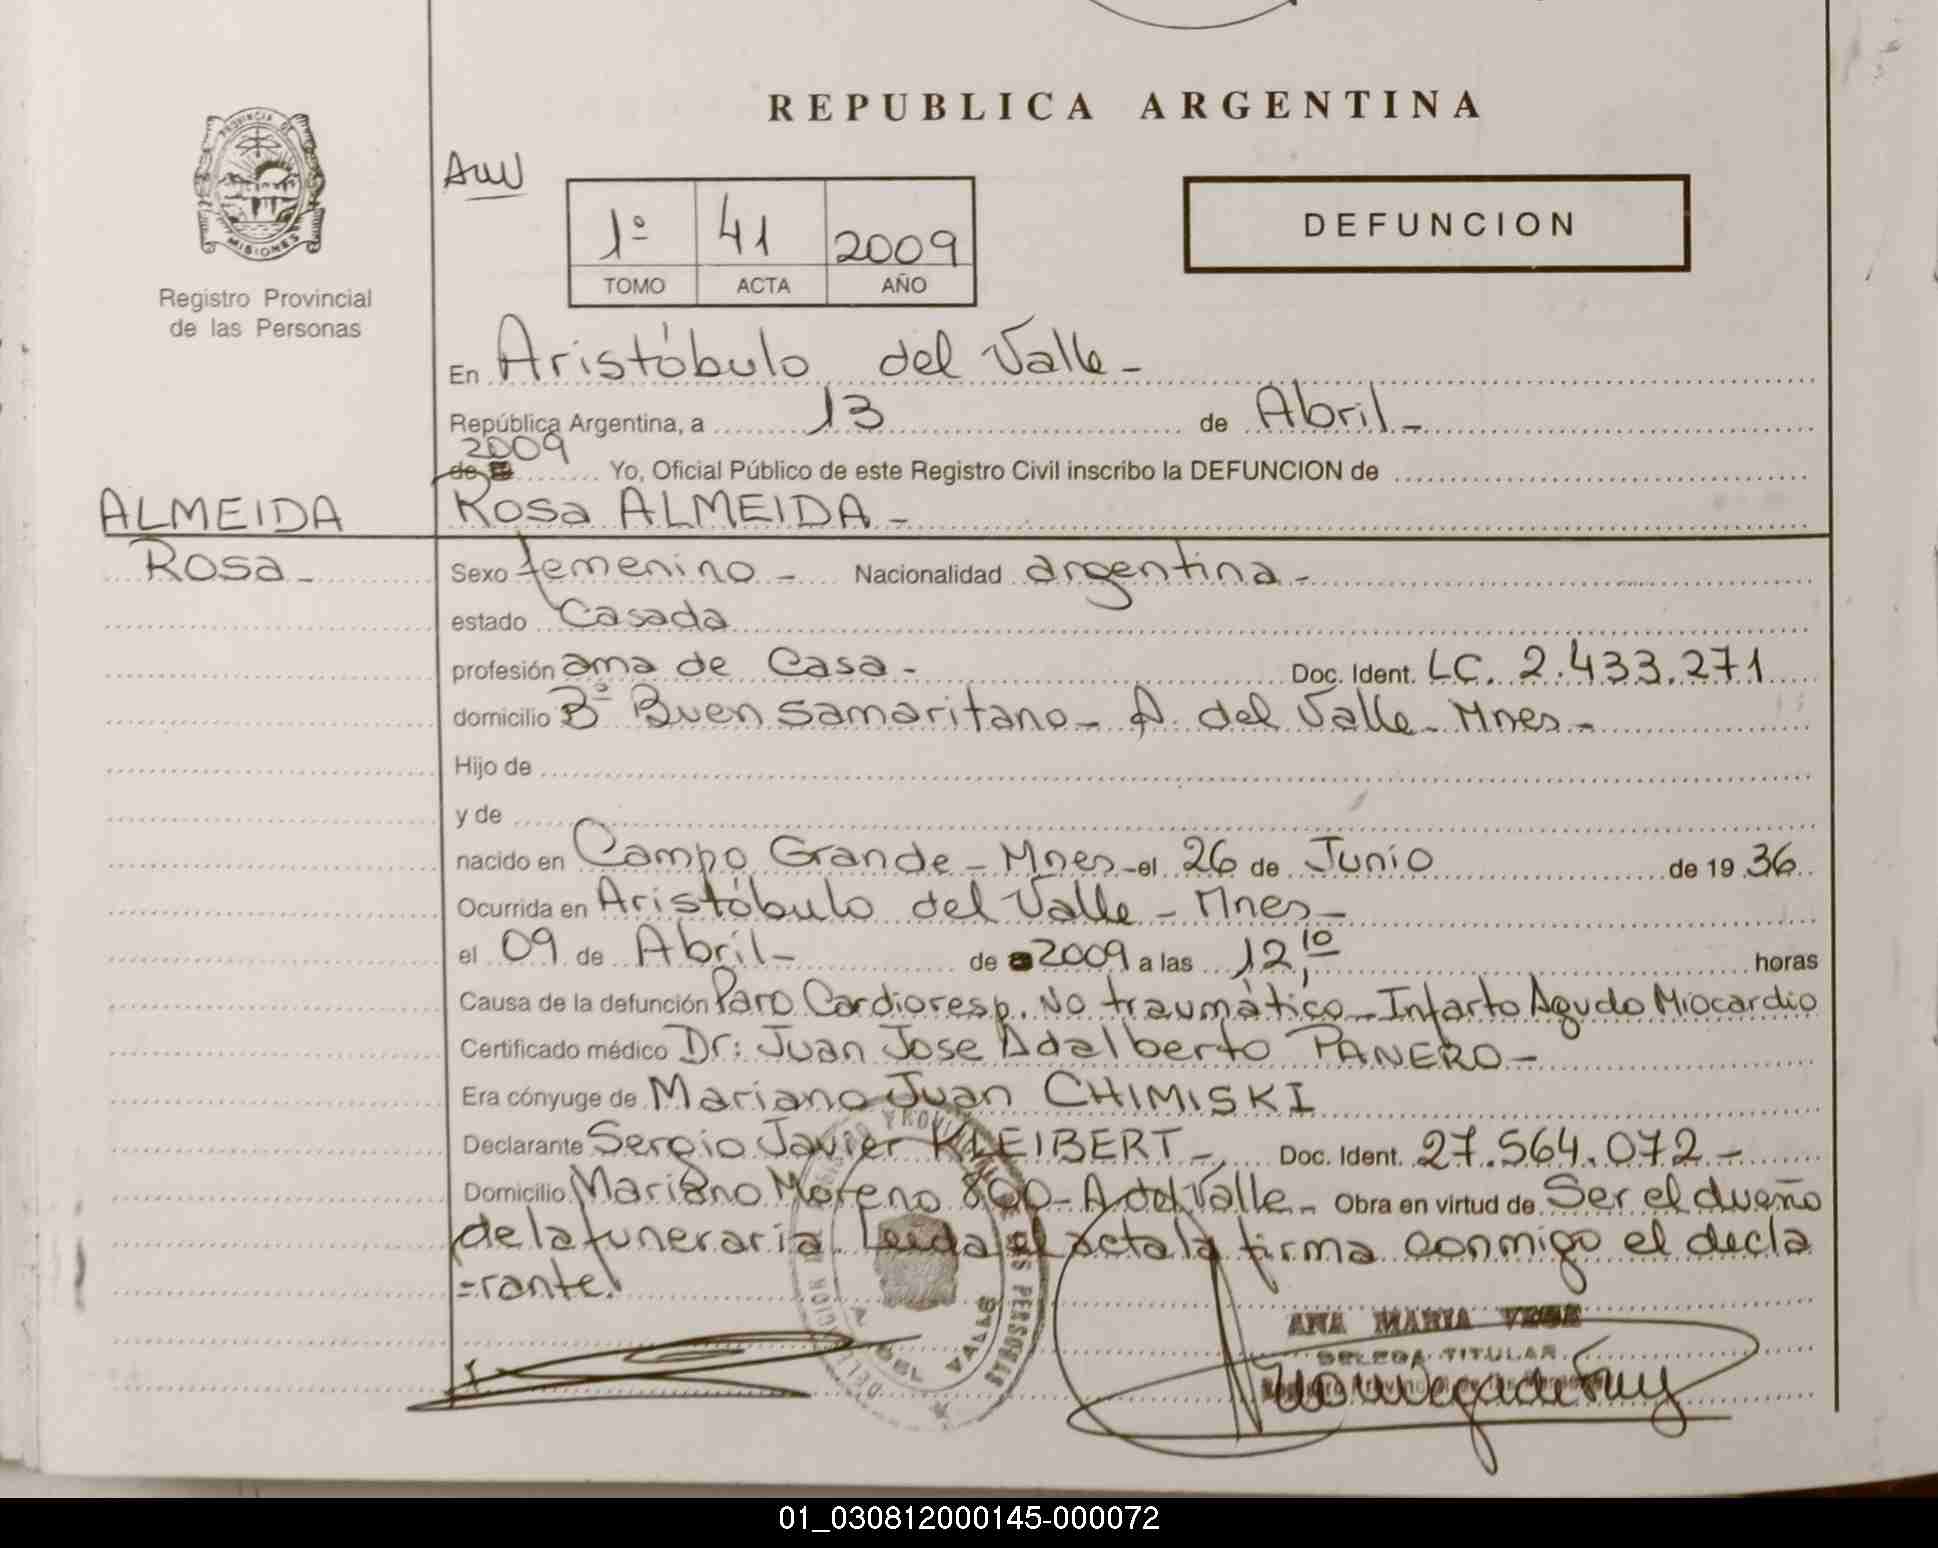 REPUBLICA ARGENTINA
PROVINCIA DE
MISIONES
Registro Provincial
de las Personas
1º 41 2009
TOMO ACTA AÑO
DEFUNCION
En Aristóbulo del Valle -
República Argentina, a 13 de Abril -
2009
de Yo, Oficial Público de este Registro Civil inscribo la DEFUNCION de
ALMEIDA Rosa ALMEIDA -
Rosa - Sexo femenino - Nacionalidad argentina -
estado Casada
profesión ama de Casa - Doc. Ident. LC. 2.433.271
domicilio Bº Buen Samaritano - A. del Valle - Mnes -
Hijo de
y de
nacido en Campo Grande - Mnes - el 26 de Junio de 19 36
Ocurrida en Aristóbulo del Valle - Mnes -
el 09 de Abril - de 2009 a las 12,10 horas
Causa de la defunción Paro Cardioresp. No traumático - Infarto Agudo Miocardio
Certificado médico Dr: Juan Jose Adalberto PANERO -
Era cónyuge de Mariano Juan CHIMISKI
Declarante Sergio Javier KLEIBERT - Doc. Ident. 27.564.072 -
Domicilio Mariano Moreno 800 - A del Valle - Obra en virtud de Ser el dueño
de la funeraria. Leida el acta la firma conmigo el decla
=rante.
DEL VALLE
ANA MARIA
TITULAR
01_030812000145-000072